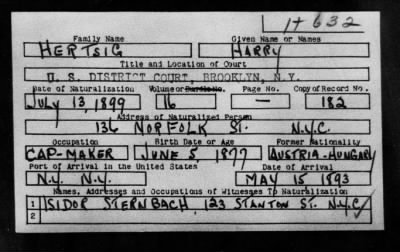 H 632
Family Name Given Name or Names
HERTSIG HARRY
Title and Location of Court
U. S. DISTRICT COURT, BROOKLYN, N.Y.
Date of Naturalization Volume or Bundle No. Page No. Copy of Record No.
JULY 13, 1899 16 — 182
Address of Naturalized Person
136 NORFOLK ST. N.Y.C.
Occupation Birth Date or Age Former Nationality
CAP-MAKER JUNE 5, 1877 AUSTRIA-HUNGARY
Port of Arrival in the United States Date of Arrival
N.Y. N.Y. MAY 15 1893
Names, Addresses and Occupations of Witnesses To Naturalization
1 ISIDOR STERNBACH, 123 STANTON ST. N.Y.C.
2